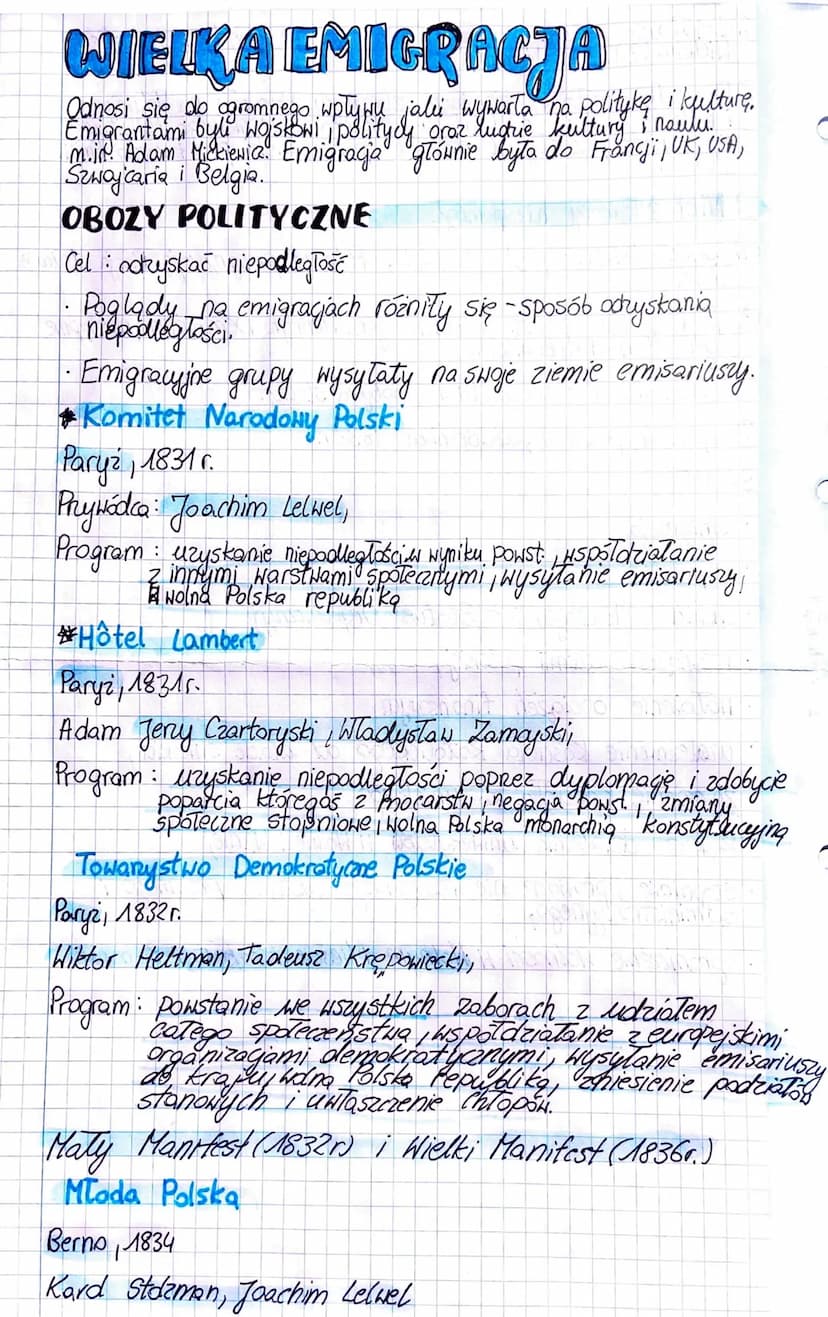 WIELKA EMIGRACJA
Odnosi się do ogromnego wpływu jaki wywarła na politykę i kulturę.
Emigrantami byli wojskowi, politycy oraz ludzie kultury i nauki.
m.in. Adam Mickiewicz. Emigracja głównie była do Francji, UK, USA,
Szwajcaria i Belgia.
OBOZY POLITYCZNE
Cel : odzyskać niepodległość
· Poglądy na emigracjach różniły się - sposób odzyskania
niepodległości.
· Emigracyjne grupy wysyłały na swoje ziemie emisariuszy.
* Komitet Narodowy Polski
Paryż, 1831 r.
Przywódca: Joachim Lelwel,
Program : uzyskanie niepodległości w wyniku powst., współdziałanie
z innymi warstwami społecznymi, wysyłanie emisariuszy,
wolna Polska republiką
* Hôtel Lambert
Paryż, 1831r.
Adam Jerzy Czartoryski, Władysław Zamoyski,
Program : uzyskanie niepodległości poprzez dyplomację i zdobycie
poparcia któregoś z mocarstw, negacja powst., zmiany
społeczne stopniowe, wolna Polska monarchią konstytucyjną
Towarzystwo Demokratyczne Polskie
Paryż, 1832r.
Wiktor Heltman, Tadeusz Krępowiecki,
Program : powstanie we wszystkich zaborach z udziałem
całego społeczeństwa, współdziałanie z europejskimi
organizacjami demokratycznymi, wysyłanie emisariuszy
do kraju, wolna Polska Republiką, zniesienie podziałów
stanowych i uwłaszczenie chłopów.
Mały Manifest (1832r) i Wielki Manifest (1836r.)
Młoda Polska
Berno, 1834
Karol Stolzman, Joachim Lelwel